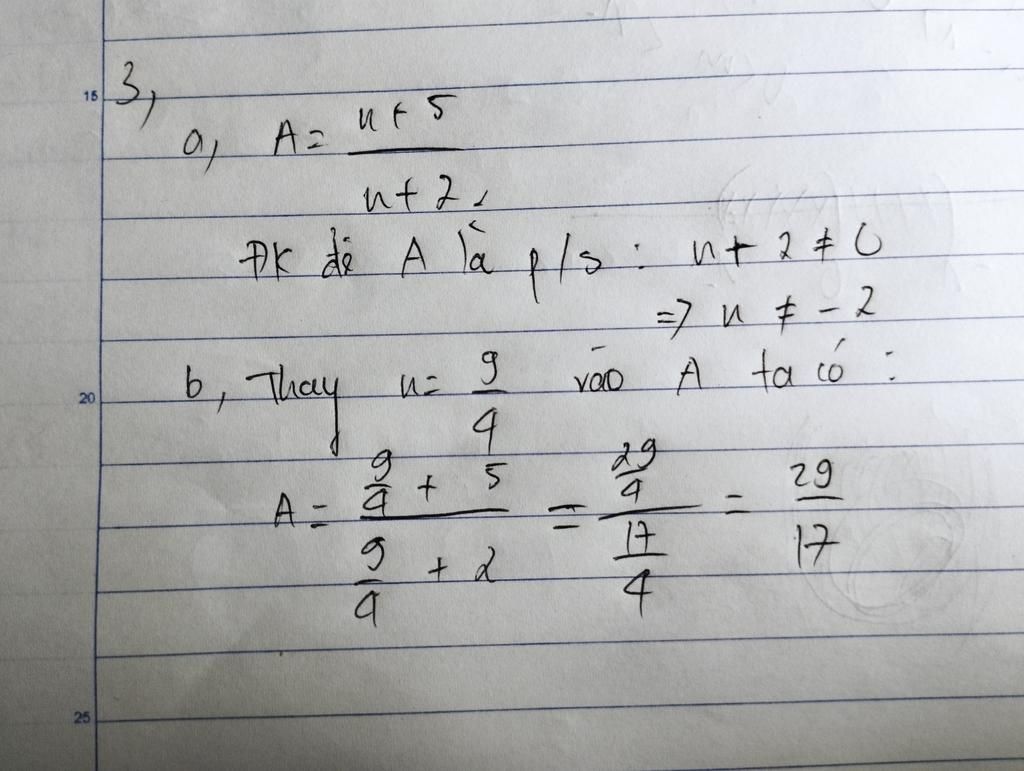 15
3,
a, A = \frac{n+5}{n+2}
ĐK để A là p/s : n + 2 ≠ 0
=> n ≠ - 2
20
b, Thay n = \frac{9}{4} vào A ta có :
A = \frac{\frac{9}{4} + 5}{\frac{9}{4} + 2} = \frac{\frac{29}{4}}{\frac{17}{4}} = \frac{29}{17}
25